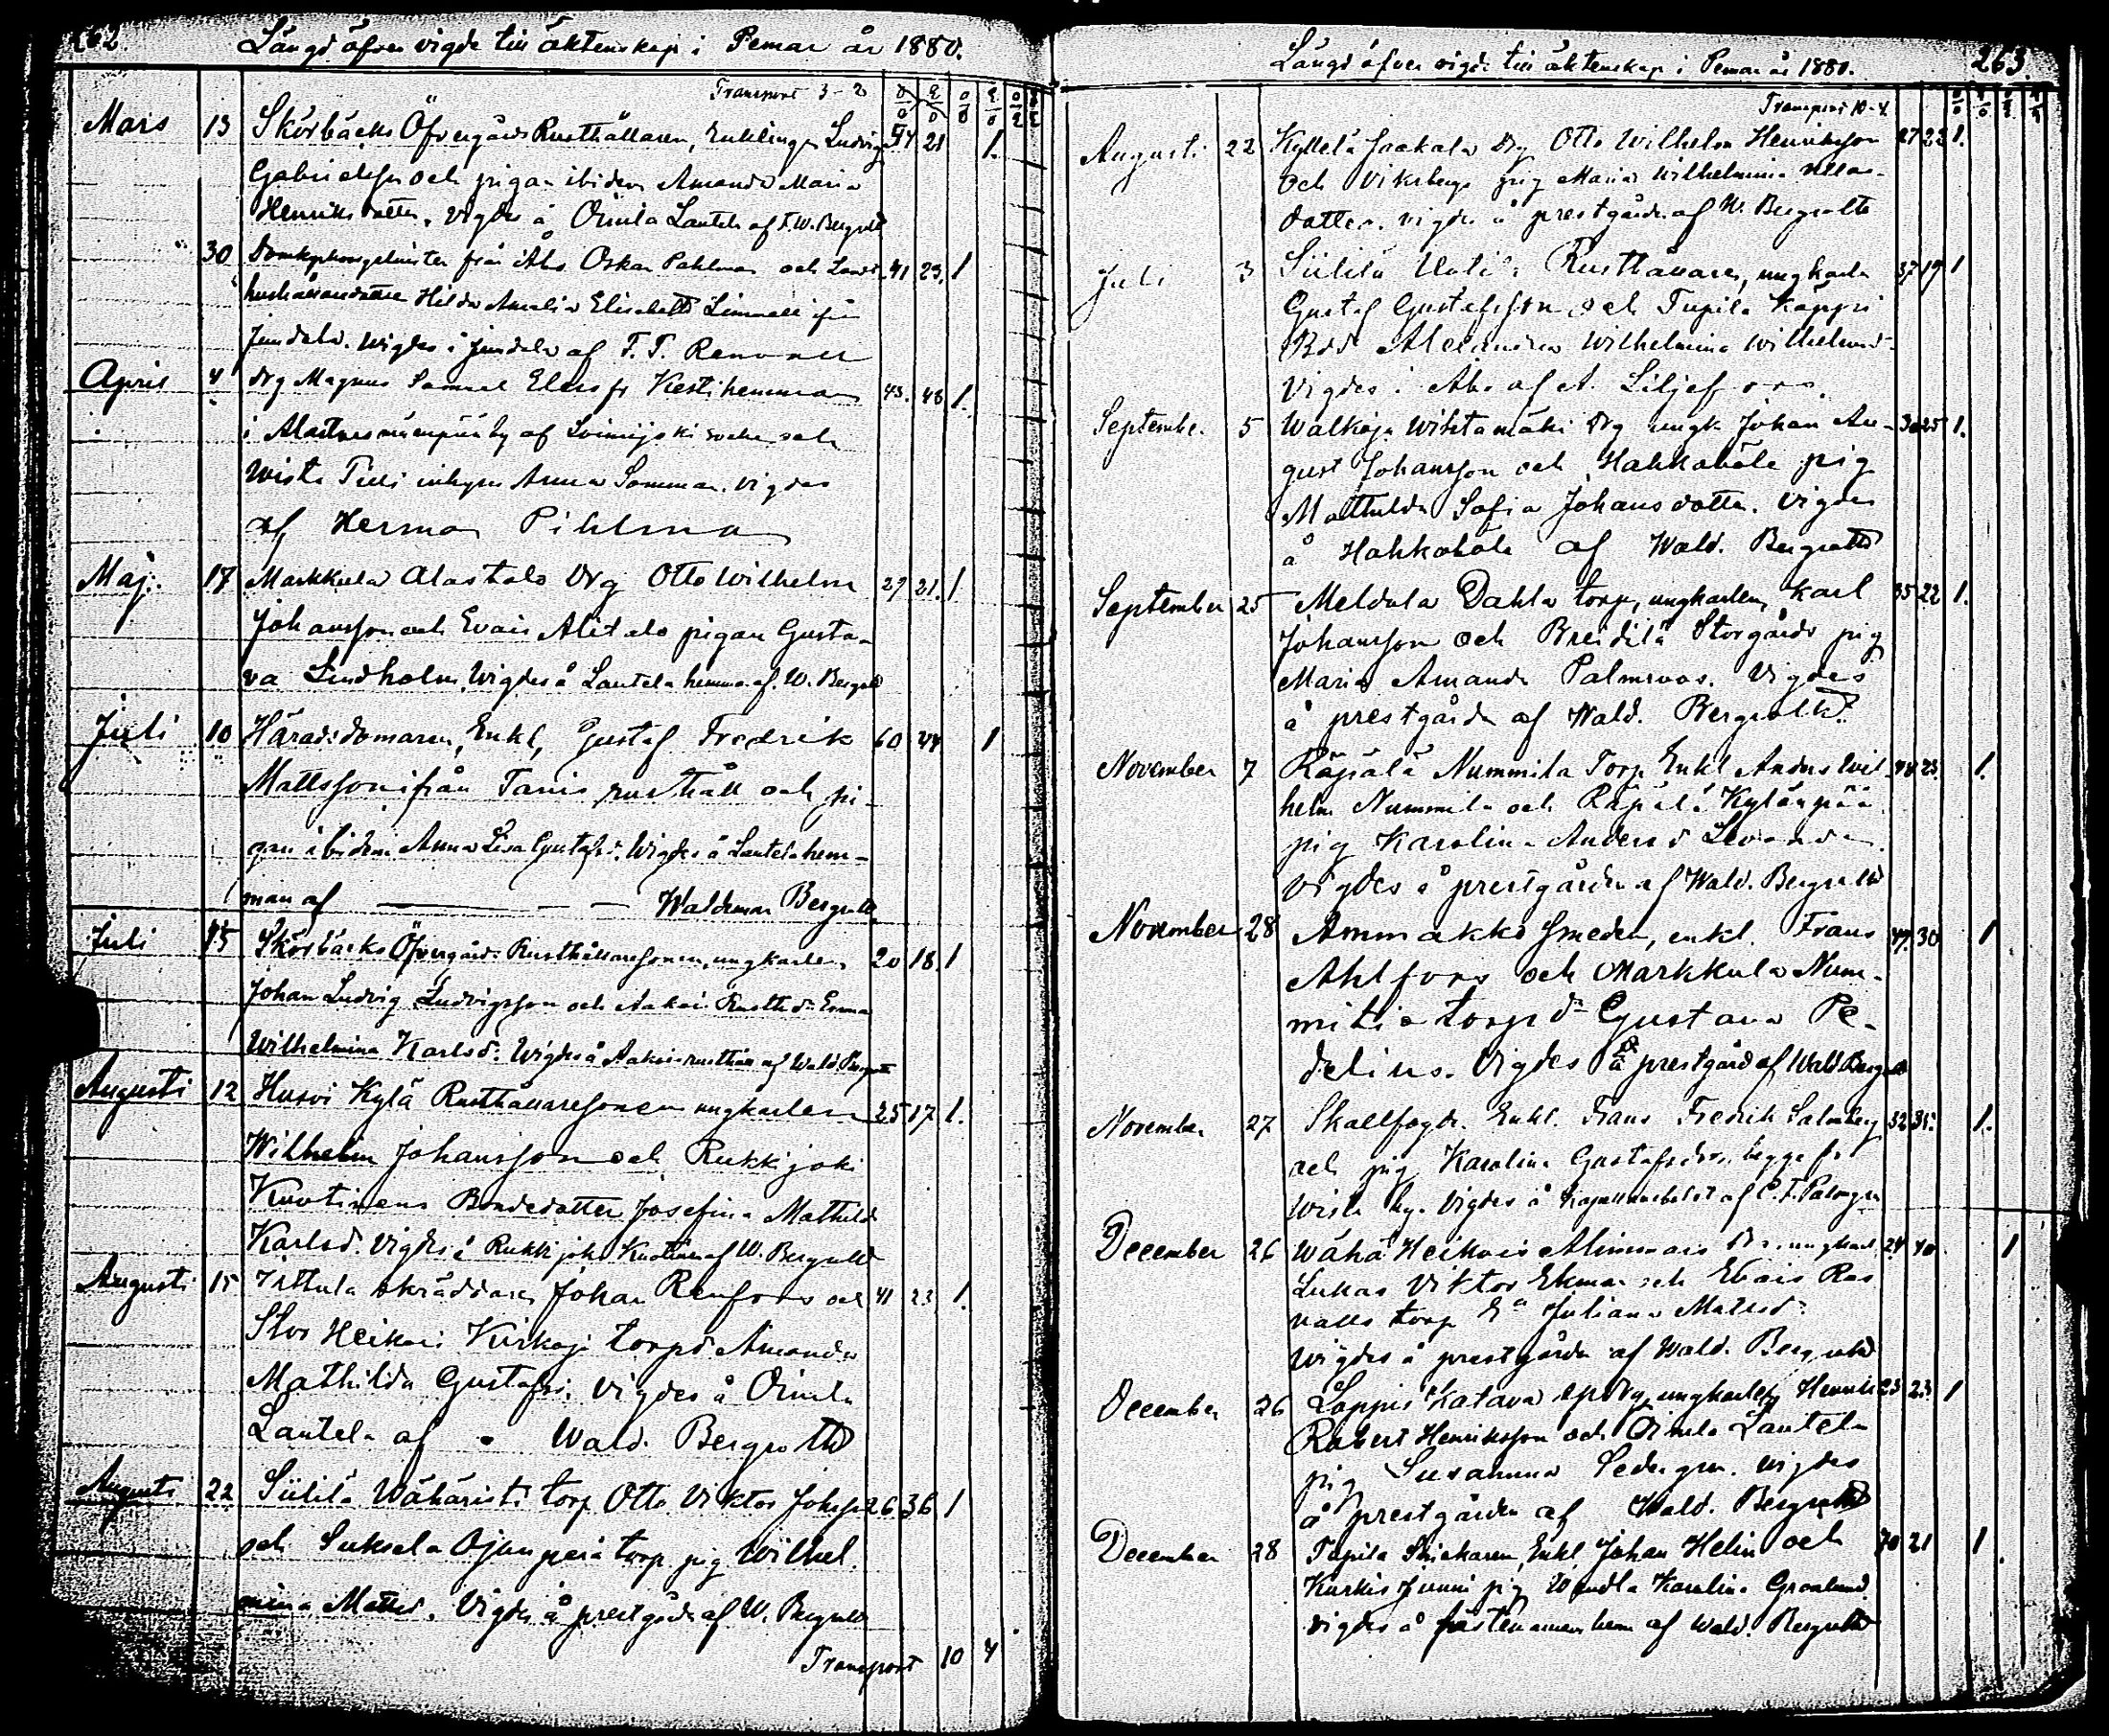 262.
Längd öfver vigde till äktenskap i Pemar år 1880.
Transport 3-2
Mars 13 Skörbäcks Öfvergårds Rusthållaren, Enklingen Ludvig 54 21 1.
Gabrielsson och pigan ibidem Amanda Maria
Henriksdotter. Vigdes å Oinila Lautela af F.W. Bergroth
30 från Åbo Oskar Pahlman och 41 23. 1
Hilda Amalia Elisabeth Limnell ifrån
Jundala. Wigdes i Jundala af F. T. Renvall
April 4 drg Magnus Samuel fr Kestihemman 43. 48 1.
i af Loimijoki socken och
Wista Tuli inhyses Anna Somman. vigdes
af Herman Pihlman
Maj. 17 Markkula Alastalo Drg Otto Wilhelm 27 21. 1
Johansson och Evais Alitalo pigan Gusta-
va Lindholm. Wigdes å Lautela hemman af. W. Bergroth
Juli 10 Häradsdomaren, Enkl, Gustaf Fredrik 60 44 1
Mattsson ifrån Tanis rusthåll och pi-
gan ibidem Anna Lisa Gustafsd. Wigdes å Lautela hem-
man af Waldemar Bergroth
Juli 15 Skörbäcks Öfvergårds Rusthållaresonen, ungkarlen 20 18 1
Johan Ludvig Ludvigsson och Aakois Rusth.d. Emma
Wilhelmina Karlsd. Wigdes å Aakois rusthåll af Wald. Bergroth
Augusti 12 Husvi Kylä Rusthållaresonen ungkarlen 25 17 1.
Wilhelm Johansson och Rukkijoki
Kuotinens Bondedotter Josefina Mathilda
Karlsd. Vigdes å Rukkijoki af W. Bergroth
Augusti 15 Isttula skräddaren Johan Renfors och 41 23 1.
Stor Heikois Kirkoja torpd. Amanda
Mathilda Gustafsd. Vigdes å Oinila
Lautela af Wald. Bergroth
Augusti 22 Siililä Wähäristi torp Otto Viktor Johsson 26 36 1
och Suksela Ojanperä torp. pig Wilhel-
mina Mattsd. Vigdes å prestgården af W. Bergroth
Transport 10 4
263.
Längd öfver vigde till äktenskap i Pemar år 1880.
Transport 10-4.
Augusti 22 Kyttelä Jaakola Drg Otto Wilhelm Henriksson 27 22 1.
och Viksberga pig Maria Wilhelmina
dotter. vigdes å prestgården af W. Bergroth
Juli 3 Siililä Rusthållaren, ungkarlen 37 19 1
Gustaf Gustafsson och Tupila Käppi
Bdd Alexandra Wilhelmina Wilhelmsd
Vigdes i Åbo af A. Liljefors.
September 5 Walkoja Wihtamäki Drg ungk. Johan Au- 30 25 1.
gust Johansson och Hakkohola pig
Mathilda Sofia Johansdotter. Vigdes
å Hakkohola af Wald. Bergroth
September 25 Meldola Dahla torp, ungkarlen, Karl 35 22 1.
Johansson och Breidilä Storgårds pig
Maria Amanda Palmroos. Vigdes
å prestgården af Wald. Bergroth.
November 7 Räpälä Nummila Torp Enkl Anders Wil- 44 23. 1.
helm Nummila och Räpälä Kylänpää
pig Karolina Andersd
vigdes å prestgården af Wald. Bergroth
November 28 Ammakko Smeden, enkl. Frans 47. 30 1
Ahlfors och Markkula Num-
mitie torpd Gustava Pe-
delius. Vigdes å prestgård af Wald Bergroth
November 27 Skallfogde. Enkl. Frans Fredrik Salmberg 52 35. 1.
och pig Karolina Gustafsdr. begge fr
Wista by. Vigdes å af C. F. Palmgren
December 26 Wähä Heikois Alimmais ungkarl. 24 40 1
Lukas Viktor Ekman och Evais Ras
valls torp Juliana Matsd.
Vigdes å prestgården af Wald. Bergroth
December 26 Lappis Katava ungkarlen Henrik 23 23 1
Robert Henriksson och Oinila Lautela
pig Susanna Sedergren. vigdes
å prestgården af Wald. Bergroth
December 28 Tapila Snickaren, Enkl. Johan Helin och 70 21 1.
Kurkis Junni pig Wendla Karolina Grönlund
vigdes å fästemannens hem af Wald. Bergroth